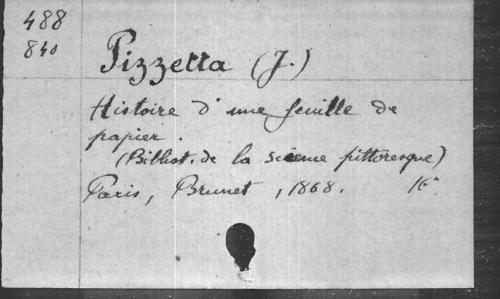 488
840
Pizzetta (J.)
Histoire d'une feuille de
papier.
(Bibliot. de la science pittoresque)
Paris, Brunet, 1868. 16°